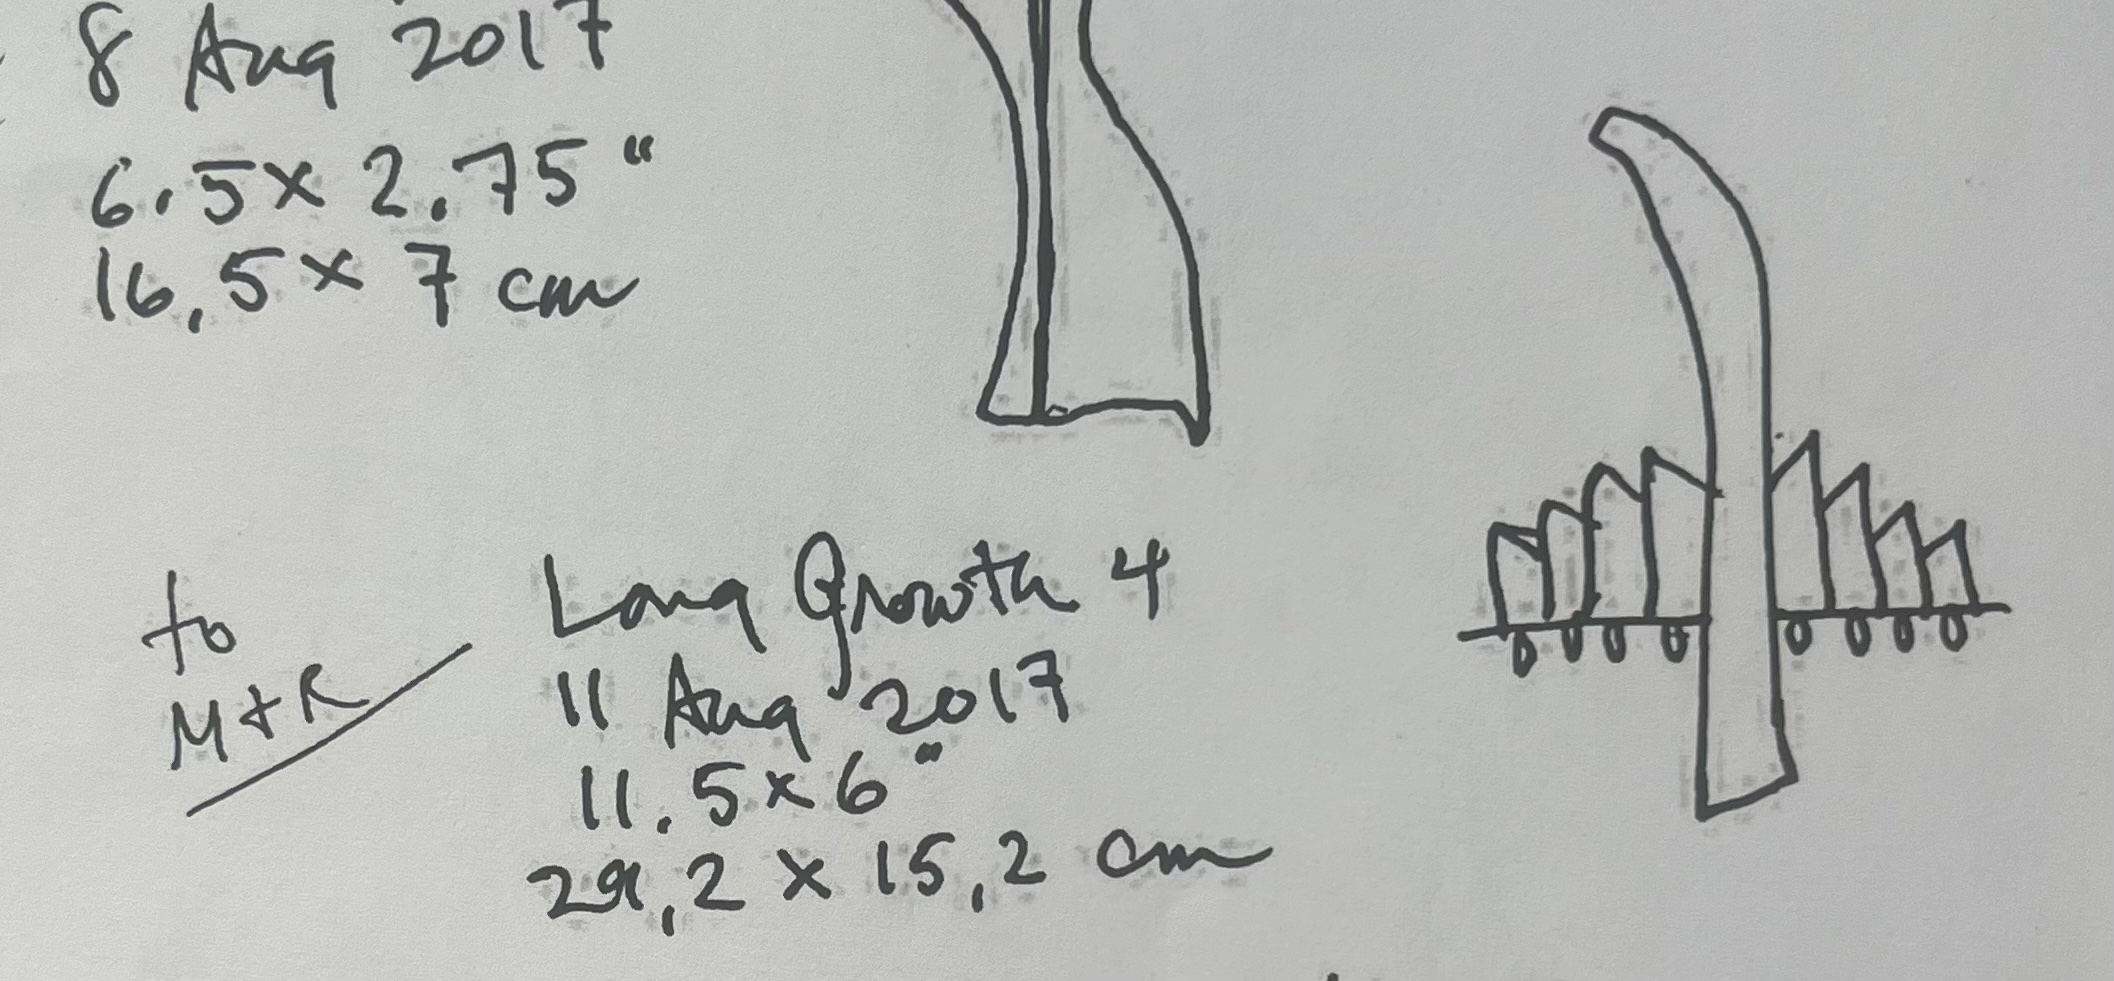 8 Aug 2017
6.5 x 2.75"
16,5 x 7 cm
to
M+R
Long Growth 4
11 Aug 2017
11.5 x 6"
29,2 x 15,2 cm